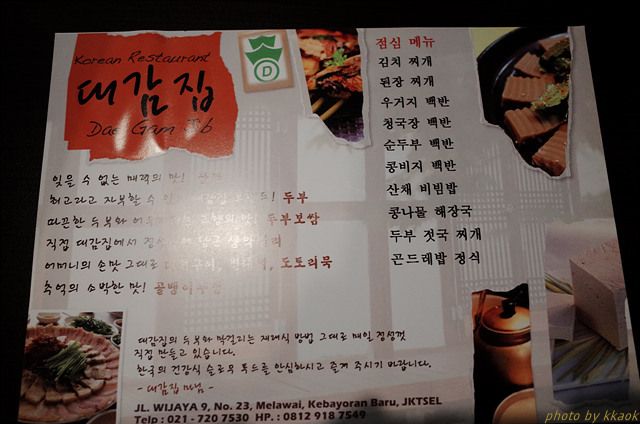 Korean Restaurant
대감집
Dae Gam Jib
D
잊을 수 없는 매력의 맛!
최고라고 자부할 수 두부
따끈한 두부와 맛! 두부보쌈
직접 대감집에서
어머니의 손맛 그대로 도토리묵
추억의 소박한 맛!
대감집의 두부와 막걸리는 재래식 방법 그대로 매일 정성껏
직접 만들고 있습니다.
한국의 건강식 슬로우 푸드를 안심하시고 즐겨 주시기 바랍니다.
- 대감집 마님 -
JL. WIJAYA 9, No. 23, Melawai, Kebayoran Baru, JKTSEL
Telp : 021 - 720 7530 HP. : 0812 918 7549
점심 메뉴
김치 찌개
된장 찌개
우거지 백반
청국장 백반
순두부 백반
콩비지 백반
산채 비빔밥
콩나물 해장국
두부 젓국 찌개
곤드레밥 정식
photo by kkaok